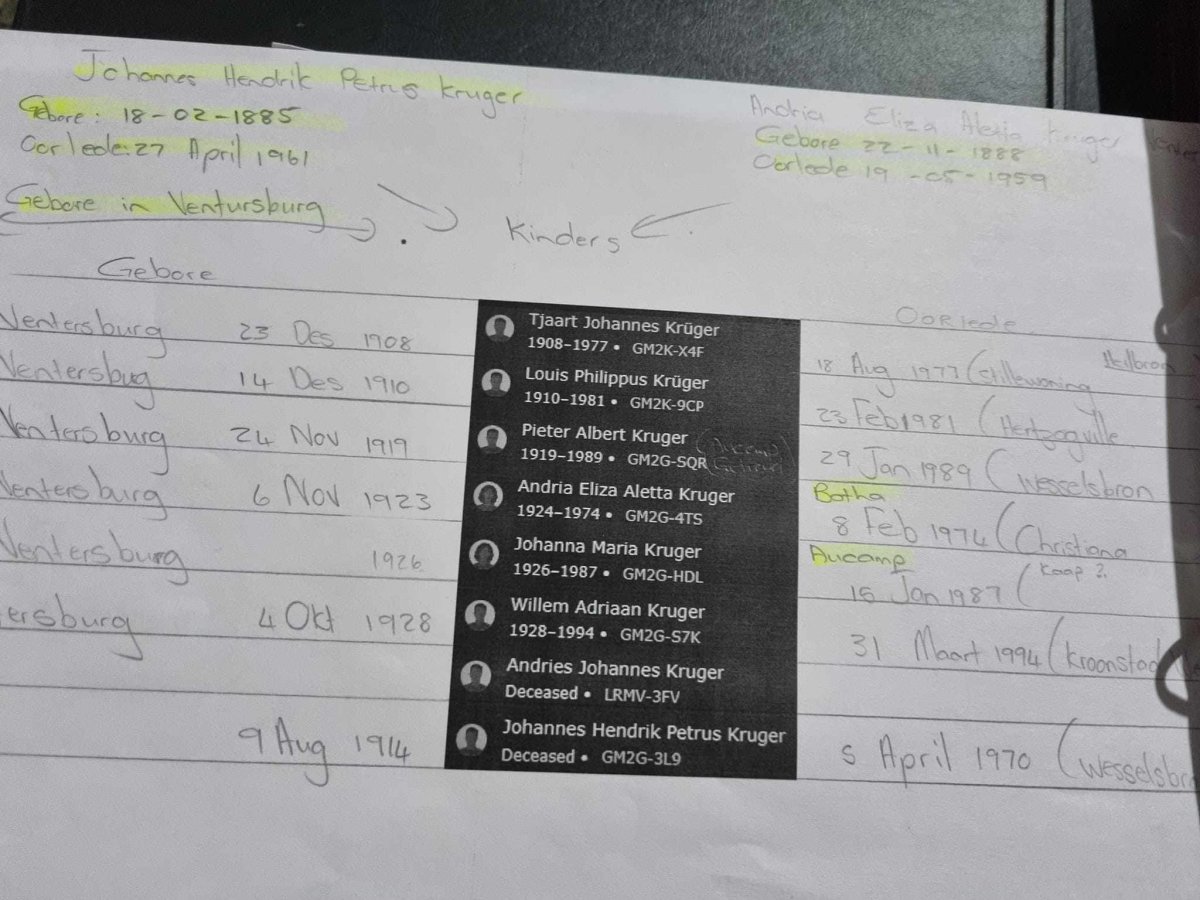 Johannes Hendrik Petrus Kruger
Gebore: 18-02-1885
Oorlede: 27 April 1961
Gebore in Ventursburg
Andria Eliza Alesia Kruger
Gebore 22-11-1888
Oorlede 19-05-1959
Kinders
Gebore
Oorlede
Ventersburg 23 Des 1908
Tjaart Johannes Krüger
1908–1977 • GM2K-X4F
18 Aug 1977 (Stillewoning Heilbron
Ventersbug 14 Des 1910
Louis Philippus Krüger
1910–1981 • GM2K-9CP
23 Feb 1981 (Hertzogville
Ventersburg 24 Nov 1919
Pieter Albert Kruger
1919–1989 • GM2G-SQR
29 Jan 1989 (Wesselsbron
Ventersburg 6 Nov 1923
Andria Eliza Aletta Kruger
1924–1974 • GM2G-4TS
Botha
8 Feb 1974 (Christiana
Ventersburg 1926
Johanna Maria Kruger
1926–1987 • GM2G-HDL
Aucamp
15 Jan 1987 (Kaap ?
ersburg 4 Okt 1928
Willem Adriaan Kruger
1928–1994 • GM2G-S7K
31 Maart 1994 (Kroonstad
Andries Johannes Kruger
Deceased • LRMV-3FV
9 Aug 1914
Johannes Hendrik Petrus Kruger
Deceased • GM2G-3L9
5 April 1970 (Wesselsbr